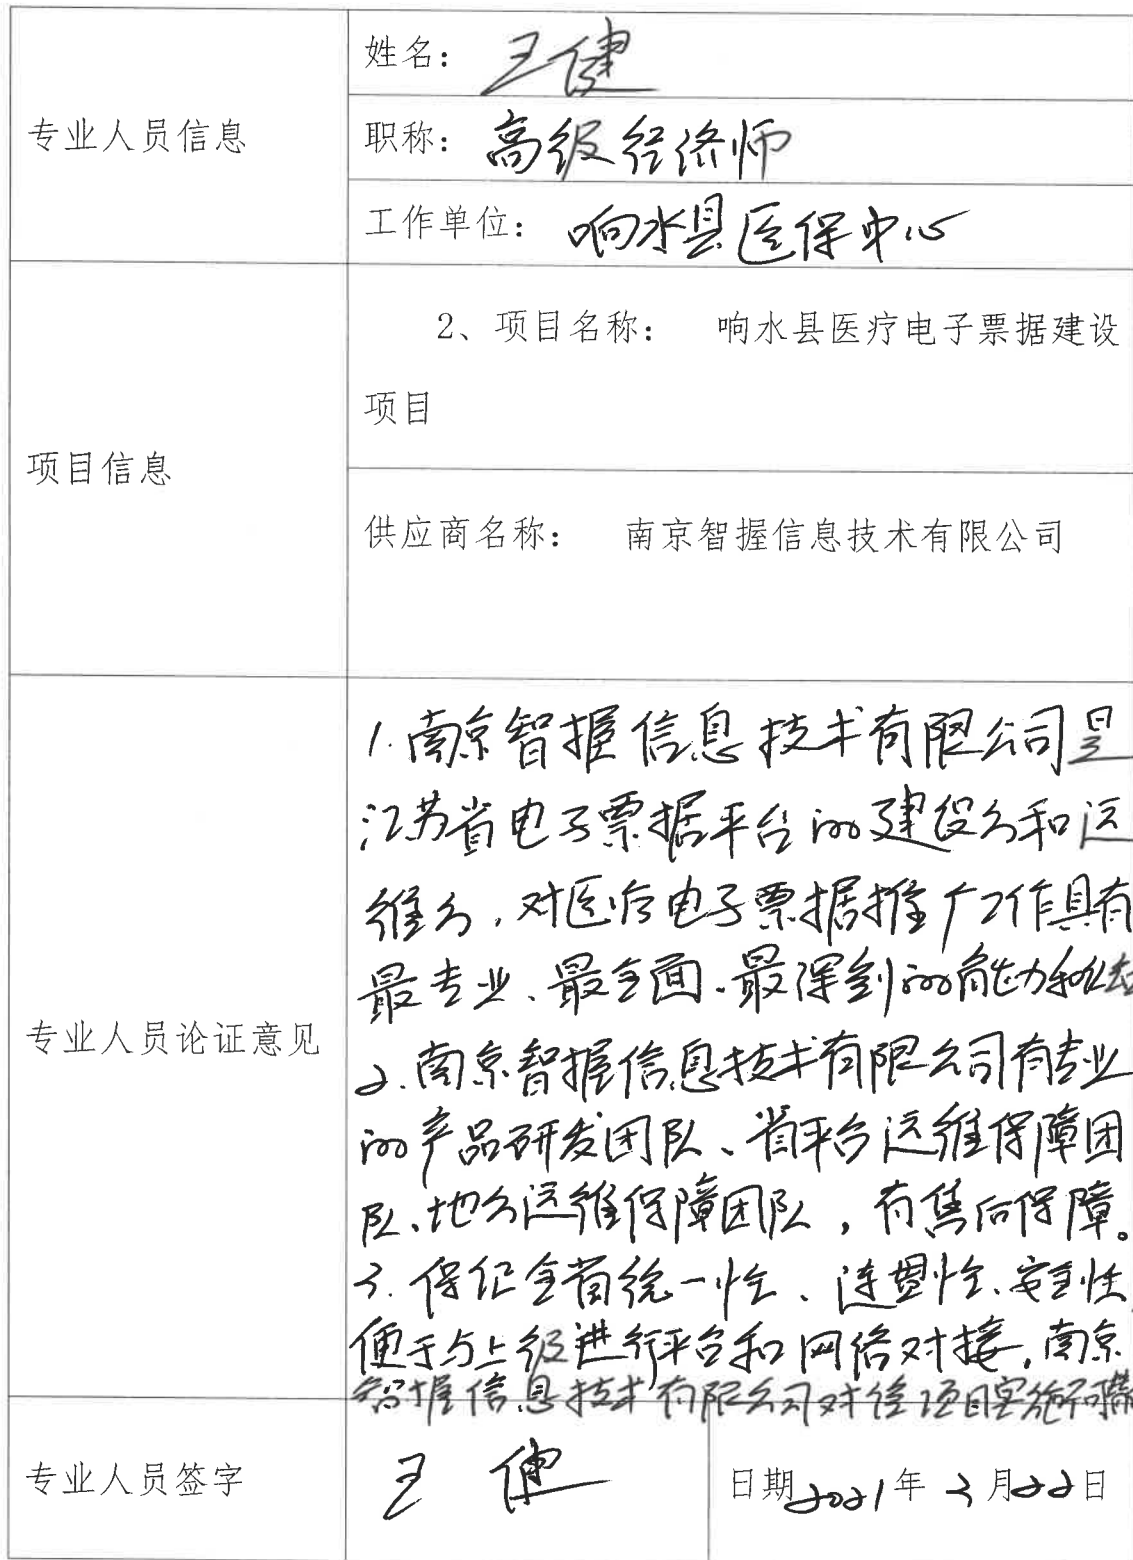 专业人员信息
姓名： 王健
职称： 高级经济师
工作单位： 响水县医保中心
项目信息
2、项目名称： 响水县医疗电子票据建设
项目
供应商名称： 南京智握信息技术有限公司
专业人员论证意见
1.南京智握信息技术有限公司是
江苏省电子票据平台的建设方和运
维方，对医疗电子票据推广工作具有
最专业、最全面、最深刻的能力和
2.南京智握信息技术有限公司有专业
的产品研发团队、省平台运维保障团
队、地方运维保障团队，有售后保障。
3.保证全省统一性、连贯性、安全性
便于与上级进行平台和网络对接，南京
智握信息技术有限公司对该项目实施
专业人员签字
王健
日期2021年3月22日